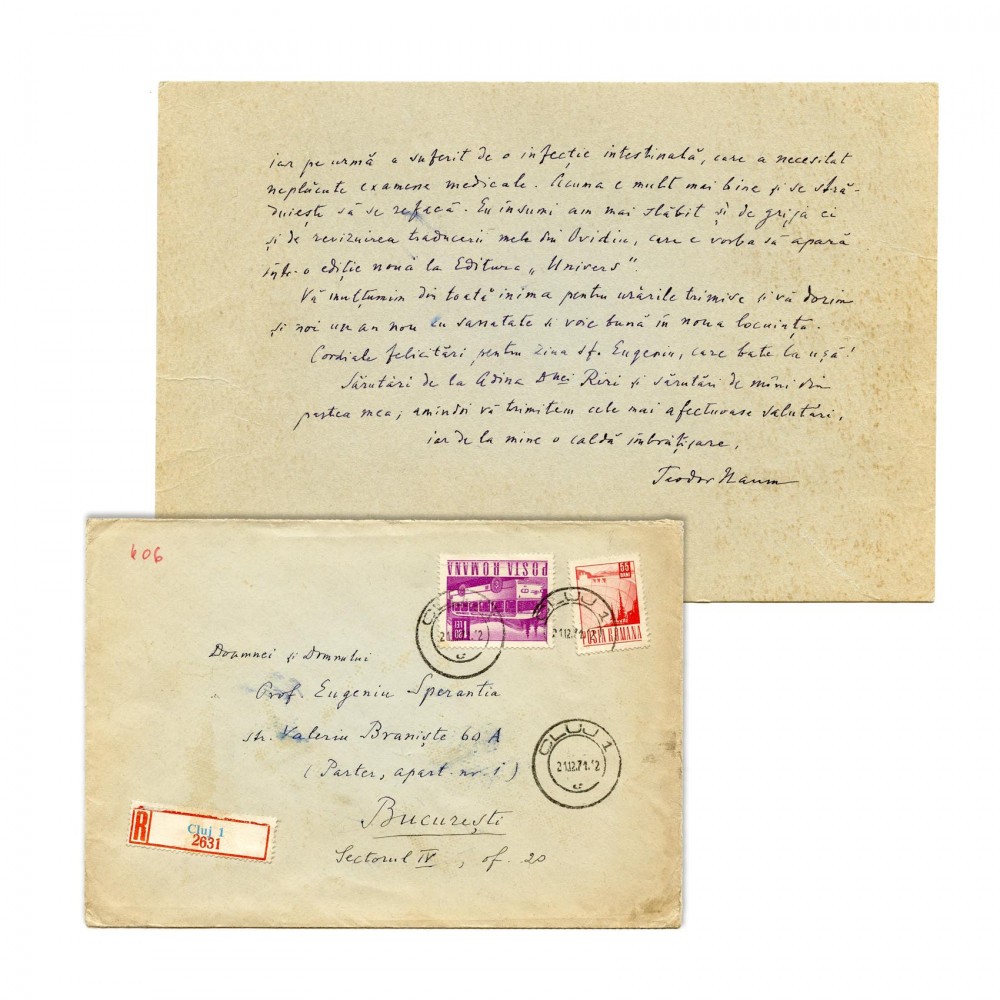 iar pe urmă a suferit de o infecție intestinală, care a necesitat
neplăcute examene medicale. Acuma e mult mai bine și se stră-
duiește să se refacă. Eu însumi am mai slăbit și de grija ei
și de revizuirea traducerii mele din Ovidiu, care e vorba să apară
într-o ediție nouă la Editura „Univers".
Vă mulțumim din toată inima pentru urările trimise și vă dorim
și noi un an nou cu sănătate și voie bună în noua locuință.
Cordiale felicitări pentru ziua sf. Eugeniu, care bate la ușă!
Sărutări de la Adina Dnei Riri și sărutări de mîni din
partea mea; amîndoi vă trimitem cele mai afectuoase salutări,
iar de la mine o caldă îmbrățișare,
Teodor Naum
606
POSTA ROMANA
1 LEI 20
55 BANI
POSTA ROMANA
CLUJ 1
21.12.71.12
c
CLUJ 1
21.12.71.12
Doamnei și Domnului
„ Prof. Eugeniu Sperantia
str. Valeriu Braniște 60 A
(Parter, apart. nr. 1)
București
Sectorul IV, of. 20
CLUJ 1
21.12.71.12
c
R
Cluj 1
2631